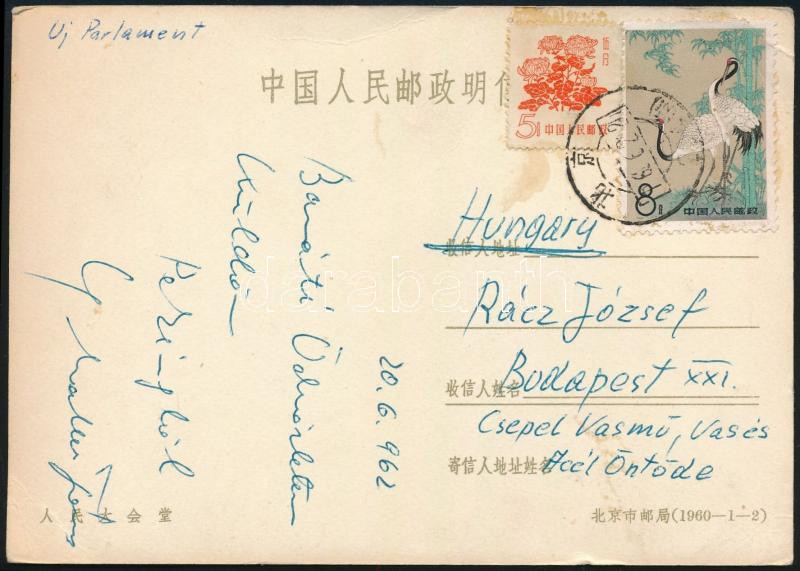 Uj Parlament
中国人民邮政明信
伍月
5 中国人民邮政
8 中国人民邮政
北京
Hungary
收信人地址
Rácz József
Budapest XXI.
收信人姓名
Csepel Vasmű, Vas és
寄信人地址姓名
Acél Öntöde
Baráti Üdvözletem
küldöm
Pekingből
20.6.962
人民大会堂
北京市邮局(1960—1—2)
darabanth